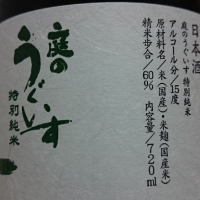 日本酒
庭のうぐいす 特別純米
アルコール分/15度
原材料名/米(国産)・米麹(国産米)
精米歩合/60% 内容量/720ml
庭の
うぐいす
特別純米